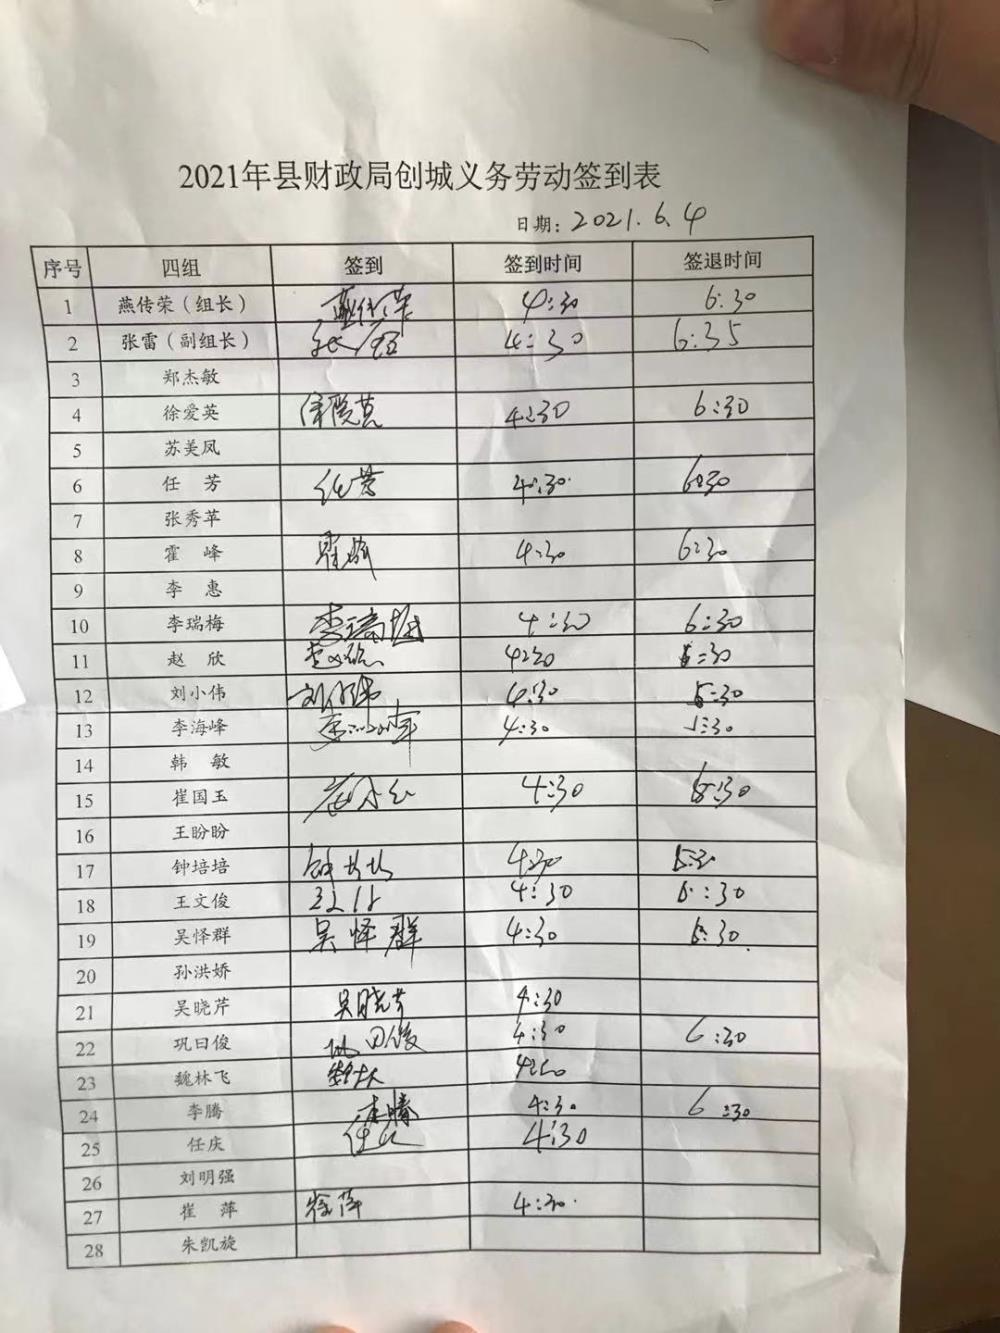 2021年县财政局创城义务劳动签到表
日期：2021.6.4
序号 四组 签到 签到时间 签退时间
1 燕传荣（组长） 燕传荣 4:30 6:30
2 张雷（副组长） 张雷 4:30 6:35
3 郑杰敏
4 徐爱英 4:30 6:30
5 苏美凤
6 任 芳 任芳 4:30 6:30
7 张秀苹
8 霍 峰 4:30 6:30
9 李 惠
10 李瑞梅 李瑞梅 4:30 6:30
11 赵 欣 赵欣 4:30 :30
12 刘小伟 刘小伟 4:30 :30
13 李海峰 李海峰 4:30 :30
14 韩 敏
15 崔国玉 4:30 :30
16 王盼盼
17 钟培培 钟培培 4:30
18 王文俊 4:30 :30
19 吴怿群 吴怿群 4:30 :30
20 孙洪娇
21 吴晓芹 吴晓芹 4:30
22 巩曰俊 巩曰俊 4:30 6:30
23 魏林飞
24 李腾 李腾 4:30 6:30
25 任庆 4:30
26 刘明强
27 崔 萍 4:30
28 朱凯旋